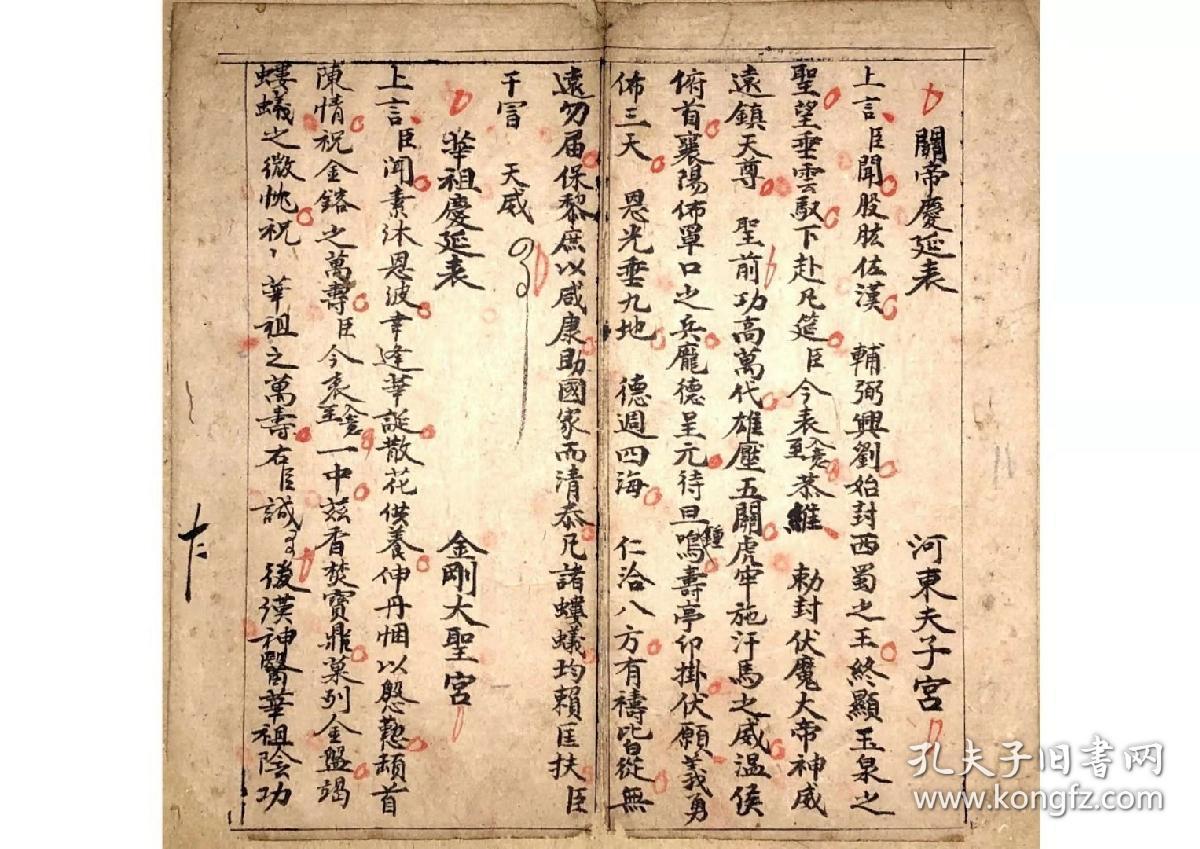 關帝慶延表 河東夫子宮
上言臣聞股肱佐漢 輔弼興劉始封西蜀之王終顯玉泉之
聖望垂雲馭下赴凡筵臣今表至意恭維 勅封伏魔大帝神威
遠鎮天尊 聖前功高萬代雄壓五關虎牢施汗馬之威温侯
俯首襄陽佈罩口之兵龐德呈元待旦鳴鍾壽亭印掛伏願義勇
佈三天 恩光垂九地 德週四海 仁洽八方有禱皆從無
遠勿届保黎庶以咸康助國家而清泰凡諸螻蟻均賴匡扶臣
干冒 天威
華祖慶延表 金剛大聖宮
上言臣聞素沐恩波幸逢華誕散花供養伸丹悃以慇懃頓首
陳情祝金鎔之萬壽臣今表至意一中兹香焚寶鼎菓列金盤竭
螻蟻之微忱祝 華祖之萬壽右臣誠 後漢神醫華祖陰功
孔夫子旧书网
www.kongfz.com